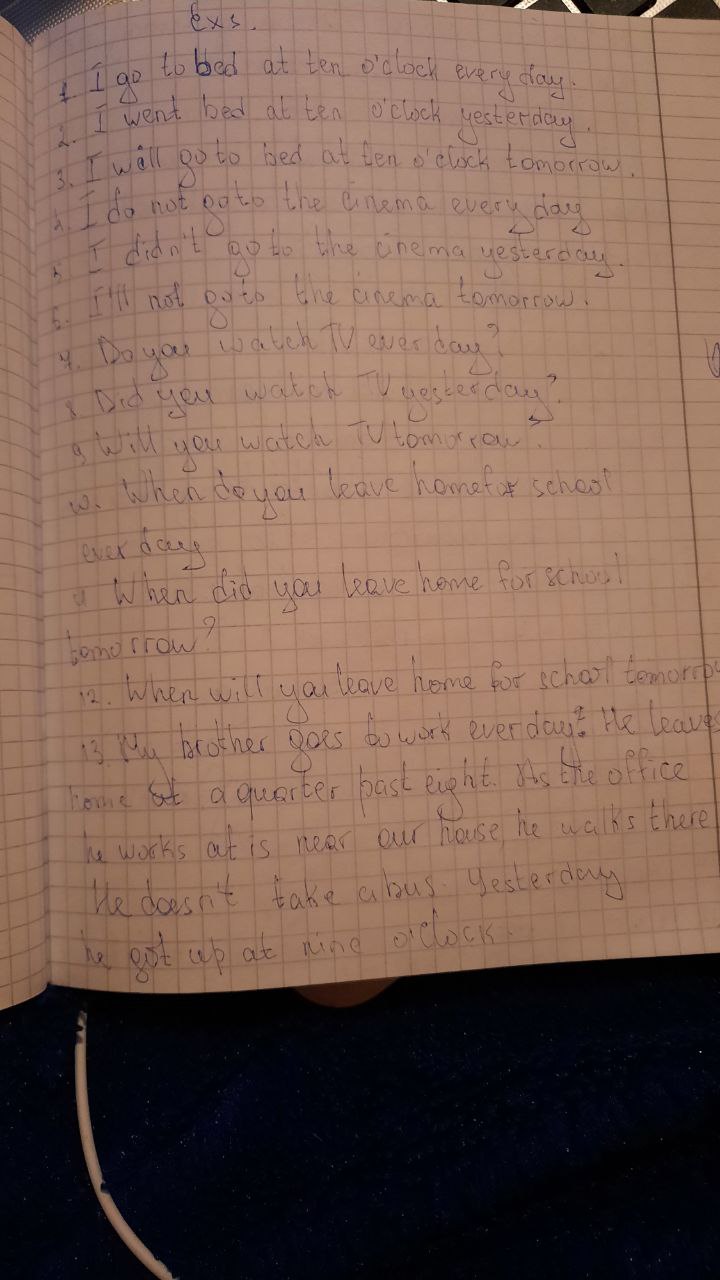 Exs.
1. I go to bed at ten o'clock every day.
2. I went bed at ten o'clock yesterday.
3. I will go to bed at ten o'clock tomorrow.
4. I do not go to the cinema every day
5. I didn't go to the cinema yesterday.
6. I'll not go to the cinema tomorrow.
7. Do you watch TV ever day?
8. Did you watch TV yesterday?
9. Will you watch TV tomorrow?
10. When do you leave home for school
ever day
11 When did you leave home for school
tomorrow?
12. When will you leave home for school tomorrow
13. My brother goes to work ever day. He leaves
home at a quarter past eight. As the office
he works at is near our house, he walks there
He doesn't take a bus. Yesterday
he got up at nine o'clock.